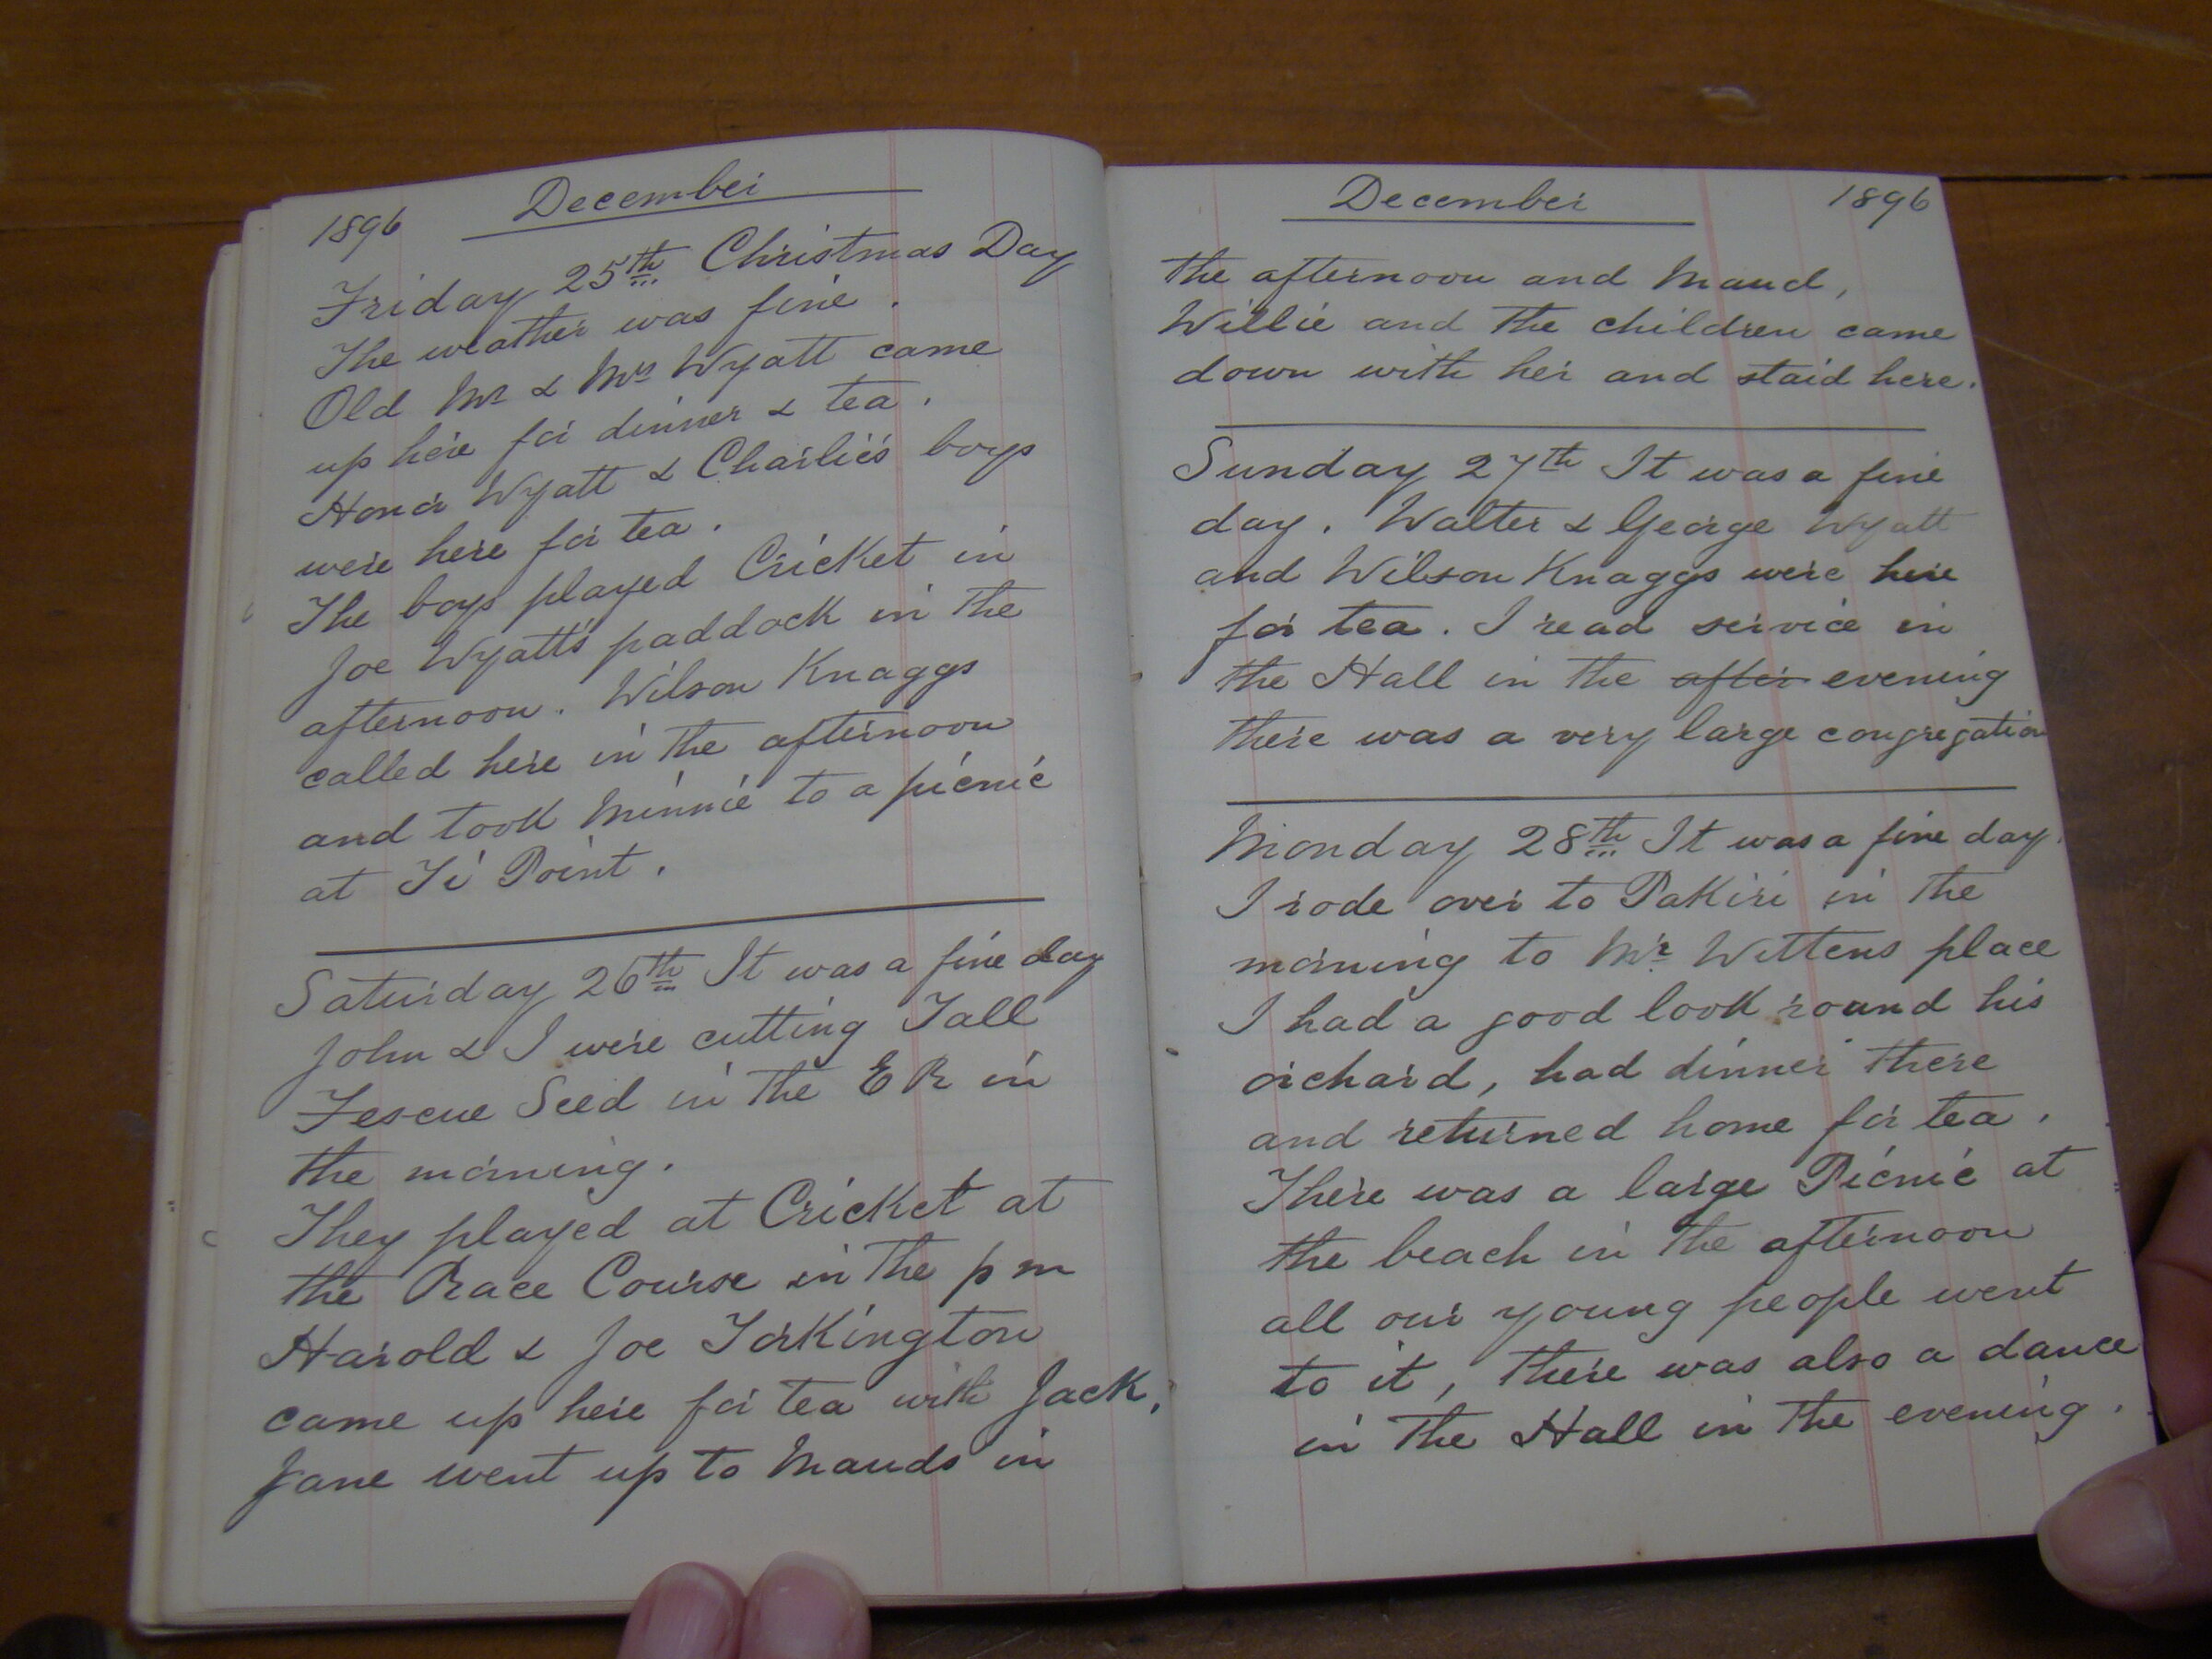 1896 December
Friday 25th Christmas Day
The weather was fine.
Old Mr & Mrs Wyatt came
up here for dinner & tea.
Honor Wyatt & Charlie's boys
were here for tea.
The boys played Cricket in
Joe Wyatt's paddock in the
afternoon. Wilson Knaggs
called here in the afternoon
and took Minnie to a picnic
at Ti Point.
Saturday 26th It was a fine day
John & I were cutting Tall
Fescue Seed in the E R in
the morning.
They played at Cricket at
the Race Course in the p m
Harold & Joe Torkington
came up here for tea with Jack,
Jane went up to Mauds in
December 1896
the afternoon and Maud,
Willie and the children came
down with her and staid here.
Sunday 27th It was a fine
day. Walter & George Wyatt
and Wilson Knaggs were here
for tea. I read service in
the Hall in the after evening
there was a very large congregation
Monday 28th It was a fine day.
I rode over to Pakiri in the
morning to Mr Wittens place
I had a good look round his
orchard, had dinner there
and returned home for tea.
There was a large Picnic at
the beach in the afternoon
all our young people went
to it, there was also a dance
in the Hall in the evening.